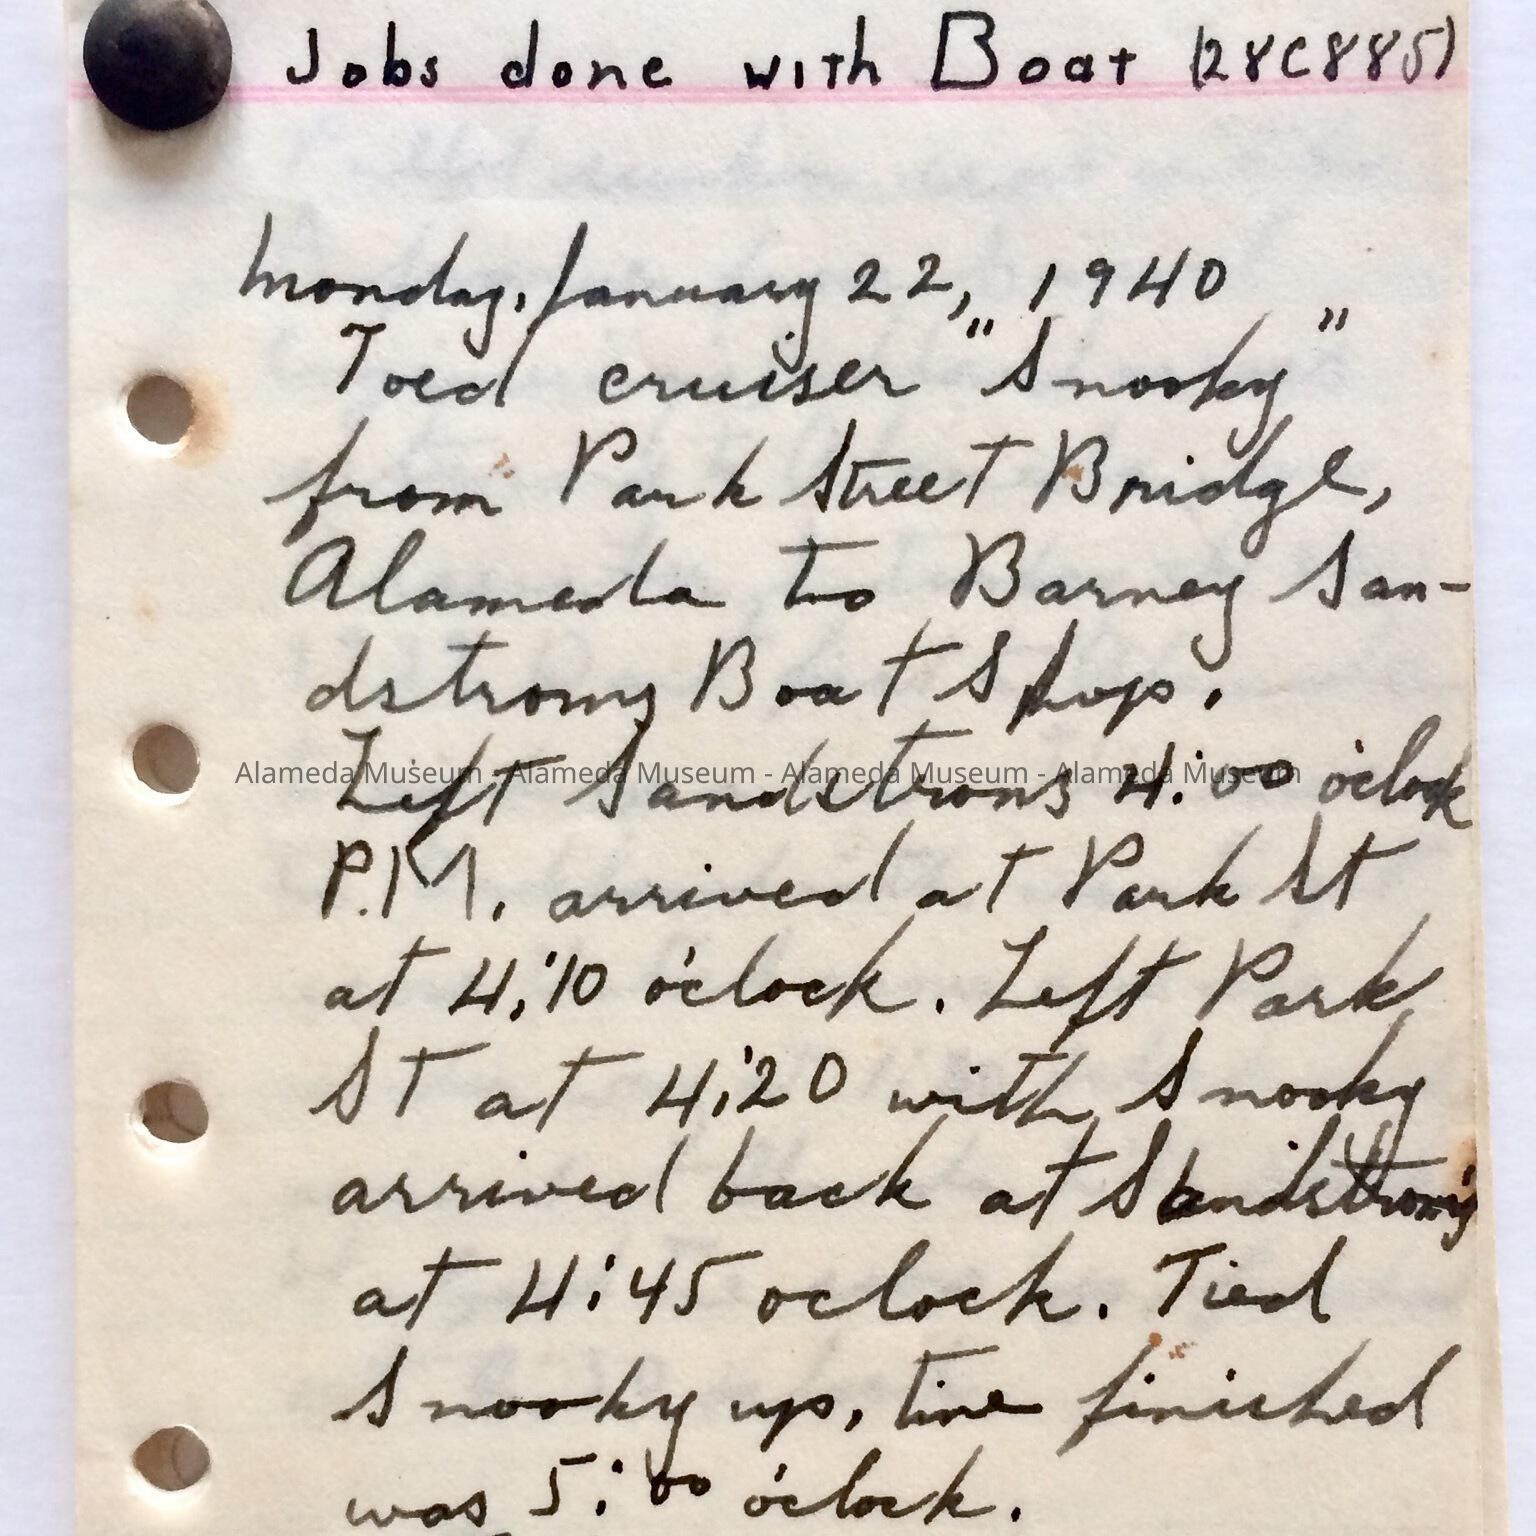 Jobs done with Boat (28C885)
Monday, January 22, 1940
Toed cruiser "Snooky"
from Park Street Bridge,
Alameda to Barney San-
dstroms Boat Shop.
Left Sandstroms 4:00 o'clock
P.M. arrived at Park St
at 4:10 o'clock. Left Park
St at 4:20 with Snooky
arrived back at Sandstrom's
at 4:45 oclock. Tied
Snooky up, time finished
was 5:00 o'clock.
Alameda Museum - Alameda Museum - Alameda Museum - Alameda Museum